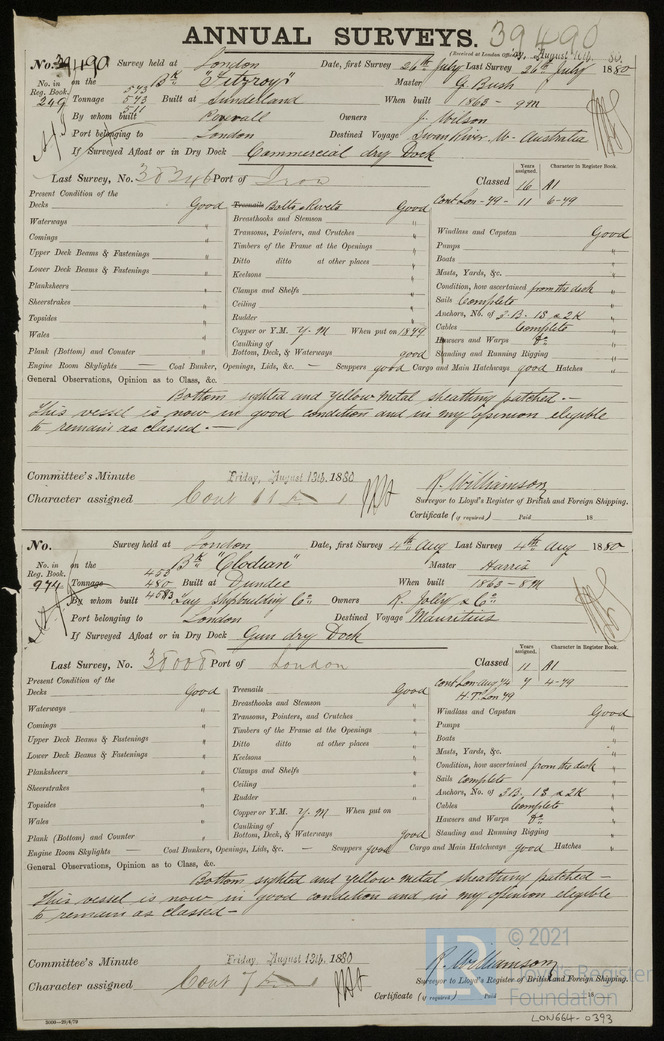 ANNUAL SURVEYS. 39490
(Received at London Office, August 10th 80.
No. 39490 Survey held at London Date, first Survey 26th July Last Survey 26th July 1880
No. in on the Bk "Fitzroy" Master G. Bush
Reg. Book. 543
249 Tonnage 543 Built at Sunderland When built 1863 - 9m
511
By whom built Owners J. Wilson
Port belonging to London Destined Voyage Swan River W. Australia
If Surveyed Afloat or in Dry Dock Commercial dry Dock
Last Survey, No. 38346 Port of Iron Classed Years assigned. 16 Character in Register Book. A1
Present Condition of the
Decks Good Treenails Bolts & Rivets Good Cont Lon - 79 - 11 6-79
Waterways " Breasthooks and Stemson " Windlass and Capstan Good
Comings " Transoms, Pointers, and Crutches " Pumps "
Upper Deck Beams & Fastenings " Timbers of the Frame at the Openings " Boats "
Lower Deck Beams & Fastenings " Ditto ditto at other places " Masts, Yards, &c. "
Planksheers " Keelsons " Condition, how ascertained from the deck
Sheerstrakes " Clamps and Shelfs " Sails Complete
Topsides " Ceiling " Anchors, No. of 3 B. 1 S & 2 K
Wales " Rudder " Cables Complete
Copper or Y.M. Y. M When put on 1879 Hawsers and Warps Do "
Plank (Bottom) and Counter " Caulking of Bottom, Deck, & Waterways good Standing and Running Rigging "
Engine Room Skylights — Coal Bunker, Openings, Lids, &c. — Scuppers good Cargo and Main Hatchways good Hatches "
General Observations, Opinion as to Class, &c.
Bottom sighted and yellow metal sheathing patched. —
This vessel is now in good condition and in my opinion eligible
to remain as classed. —
Committee's Minute Friday, August 13th, 1880
Character assigned Cont 11 R. Williamson
Surveyor to Lloyd's Register of British and Foreign Shipping.
Certificate (if required) Paid 18
No. Survey held at London Date, first Survey 4th Aug Last Survey 4th Aug 1880
No. in on the Bk "Clodian" Master Harris
Reg. Book. 453
974 Tonnage 480 Built at Dundee When built 1863 - 8m
458
By whom built Tay Shipbuilding Co. Owners R. Jolly & Co.
Port belonging to London Destined Voyage Mauritius
If Surveyed Afloat or in Dry Dock Gun dry Dock
Last Survey, No. 38008 Port of London Classed Years assigned. 11 Character in Register Book. A1
Present Condition of the Cont Lon Aug 74 7 4-79
H.T. Lon 79
Decks Good Treenails Good Windlass and Capstan Good
Waterways " Breasthooks and Stemson " Pumps "
Comings " Transoms, Pointers, and Crutches " Boats "
Upper Deck Beams & Fastenings " Timbers of the Frame at the Openings " Masts, Yards, &c. "
Lower Deck Beams & Fastenings " Ditto ditto at other places " Condition, how ascertained from the deck
Planksheers " Keelsons " Sails complete
Sheerstrakes " Clamps and Shelfs " Anchors, No. of 3 B. 1 S & 2 K
Topsides " Ceiling " Cables Complete
Wales " Rudder " Hawsers and Warps Do "
Copper or Y.M. Y. M When put on Standing and Running Rigging "
Plank (Bottom) and Counter " Caulking of Bottom, Deck, & Waterways good
Engine Room Skylights — Coal Bunkers, Openings, Lids, &c. — Scuppers good Cargo and Main Hatchways good Hatches "
General Observations, Opinion as to Class, &c.
Bottom sighted and yellow metal sheathing patched —
This vessel is now in good condition and in my opinion eligible
to remain as classed —
Committee's Minute Friday, August 13th, 1880
Character assigned Cont 7 R. Williamson
Surveyor to Lloyd's Register of British and Foreign Shipping.
Certificate (if required) Paid 18
© 2021
Lloyd's Register
Foundation
LR
2000—20/4/79
LON664-0393